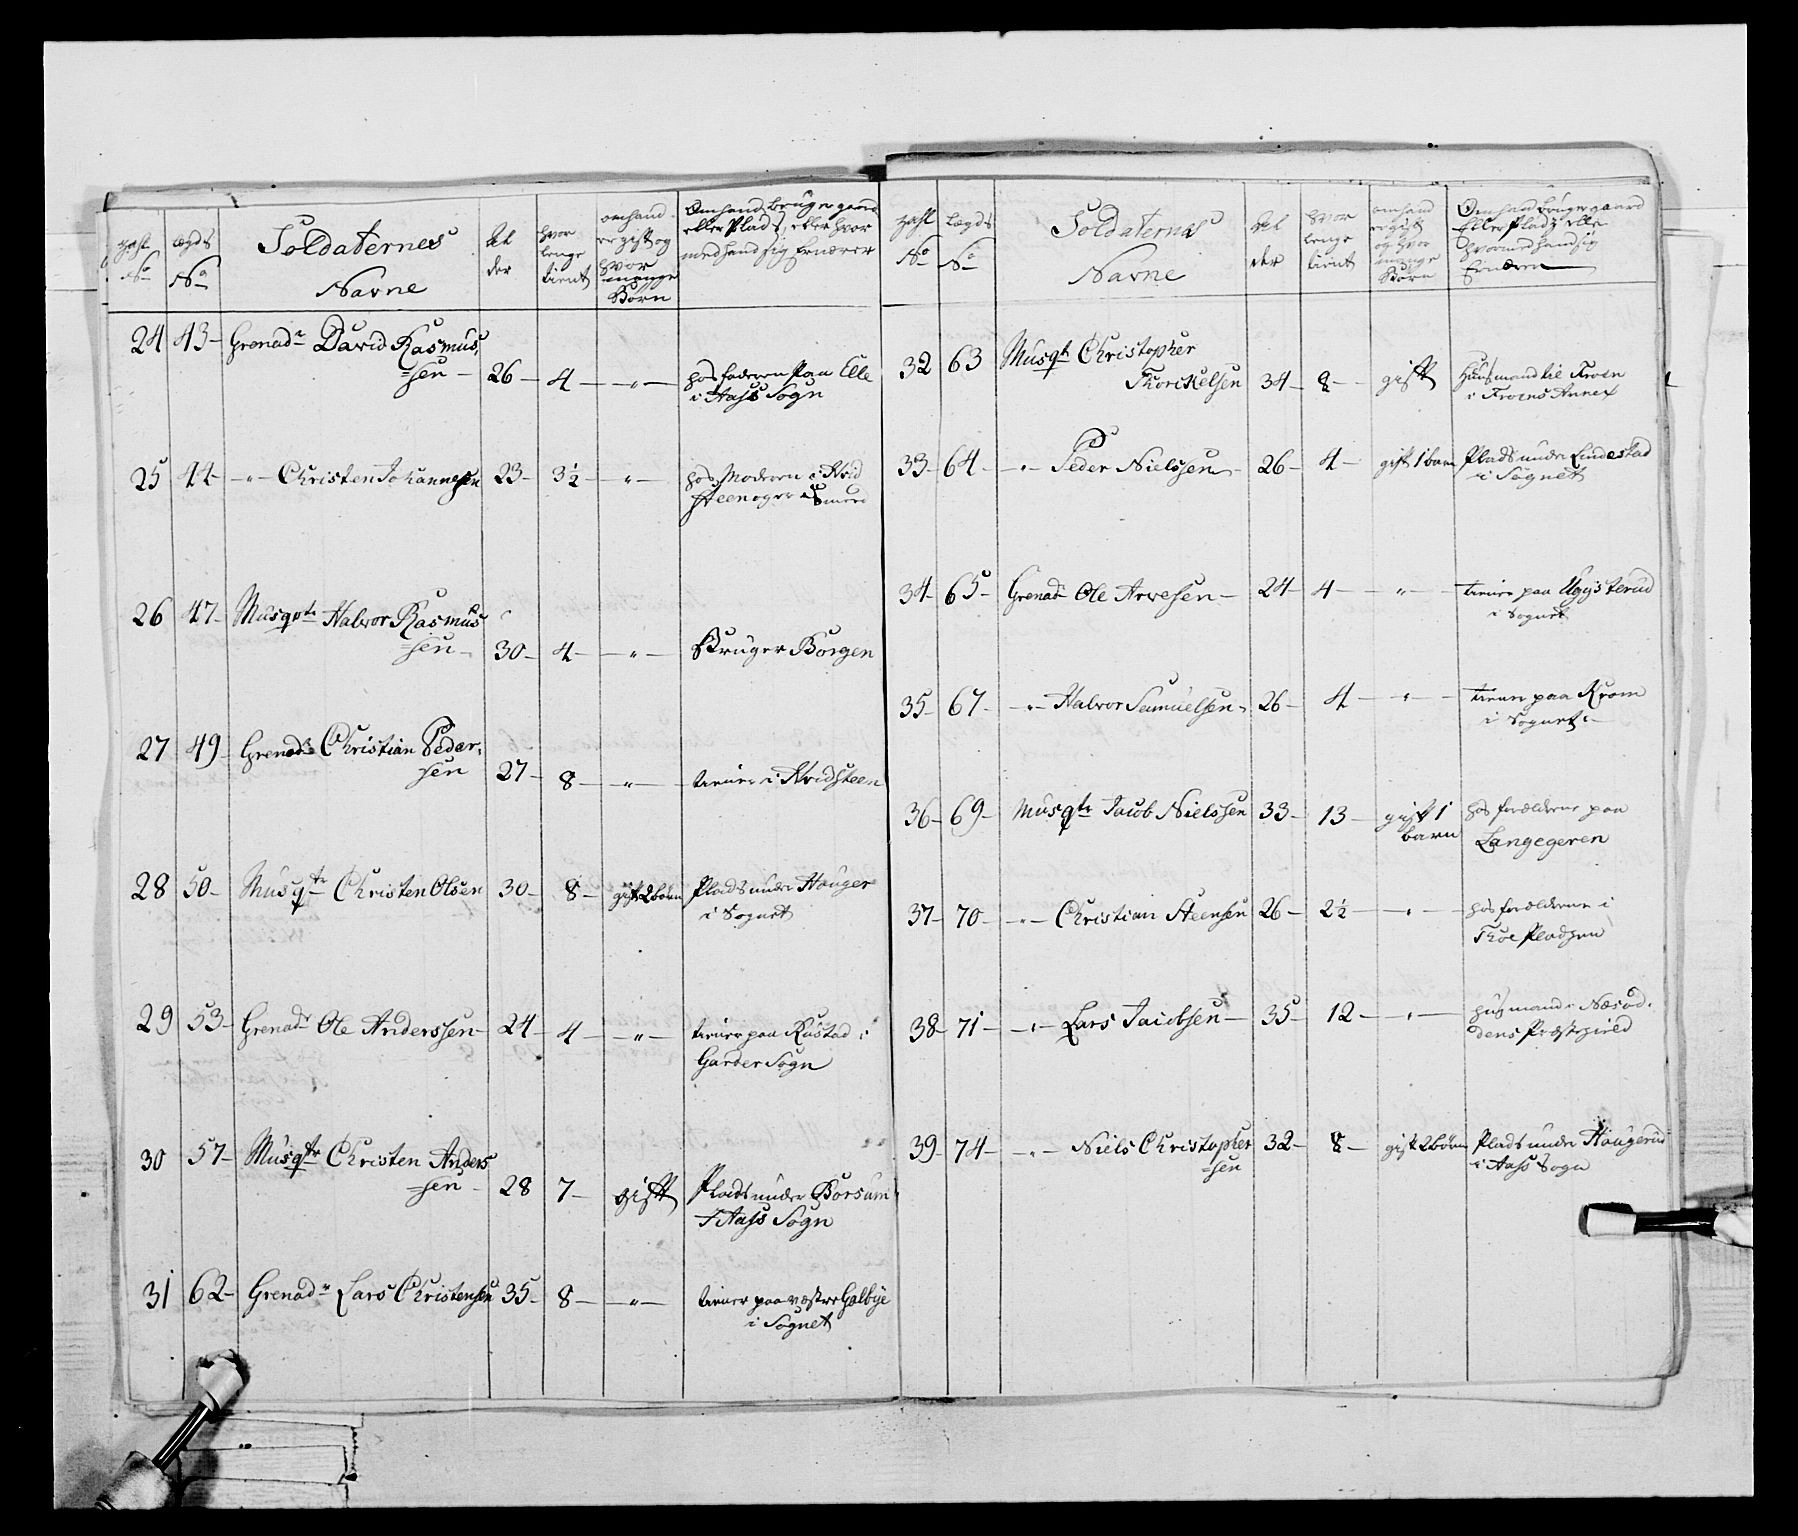 Soldaternes
Navne
Al
der
hvor
lenge
tient
omhand
er gift og
hvor
mange
Børn
Omhand bruger gaard
eller Plads, eller hvor
med hand sig Ernærer
24 43 Grenadr David Rasmus
=sen 26 4 " hos faderen Paa Elle
i Aass Sogn
25 44 " Christen Johannesen 23 3½ " hos Moderen i Kvid
26 47 Musqtr Halvor Rasmus
=sen 30 4 " Bruger Borgen
27 49 Grenadr Christian Peder-
sen 27 8 " tiener i Kvidsteen
28 50 Musqtr Christen Olsen 30 8 gift 2 børn Plads under Houger
i Sognet
29 53 Grenadr Ole Anderssen 24 4 " tiener paa Rustad i
Garder Sogn
30 57 Musqtr Christen Anders
=sen 28 7 gift Plads under Borsum
i Aass Sogn
31 62 Grenadr Lars Christensen 35 8 " tiener paa væstre Galbye
i Sognet
Zahl No
Lægds No
Soldaternes
Navne
Al
der
hvor
lenge
tient
omhand
er gift
og hvor
mange
Børn
Omhand bruger gaard
Eller Plads eller
hvormed hand sig
Ernærer
32 63 Musqt Christopher
Thorkelsen 34 8 gift Huusmand til Froen
i Froens Annex
33 64 " Peder Nielssen 26 4 gift 1 barn Plads under Lindestad
i Sognet
34 65 Grenad Ole Arvesen 24 4 " tiener paa Uggsterud
i Sognet
35 67 " Halvor Samuelsen 26 4 " tiener paa Krom
i Sognet
36 69 Musqtr Jacob Nielssen 33 13 gift 1
barn hos forældrene paa
Langegeren
37 70 " Christian Steensen 26 2½ " hos forældrene i
Thoe Pladsen
38 71 " Lars Jacobsen 35 12 " husmand i Næsod-
dens Præstegield
39 74 " Niels Christopher
=sen 32 8 gift 2 børn Plads under Haugerud
i Aass Sogn